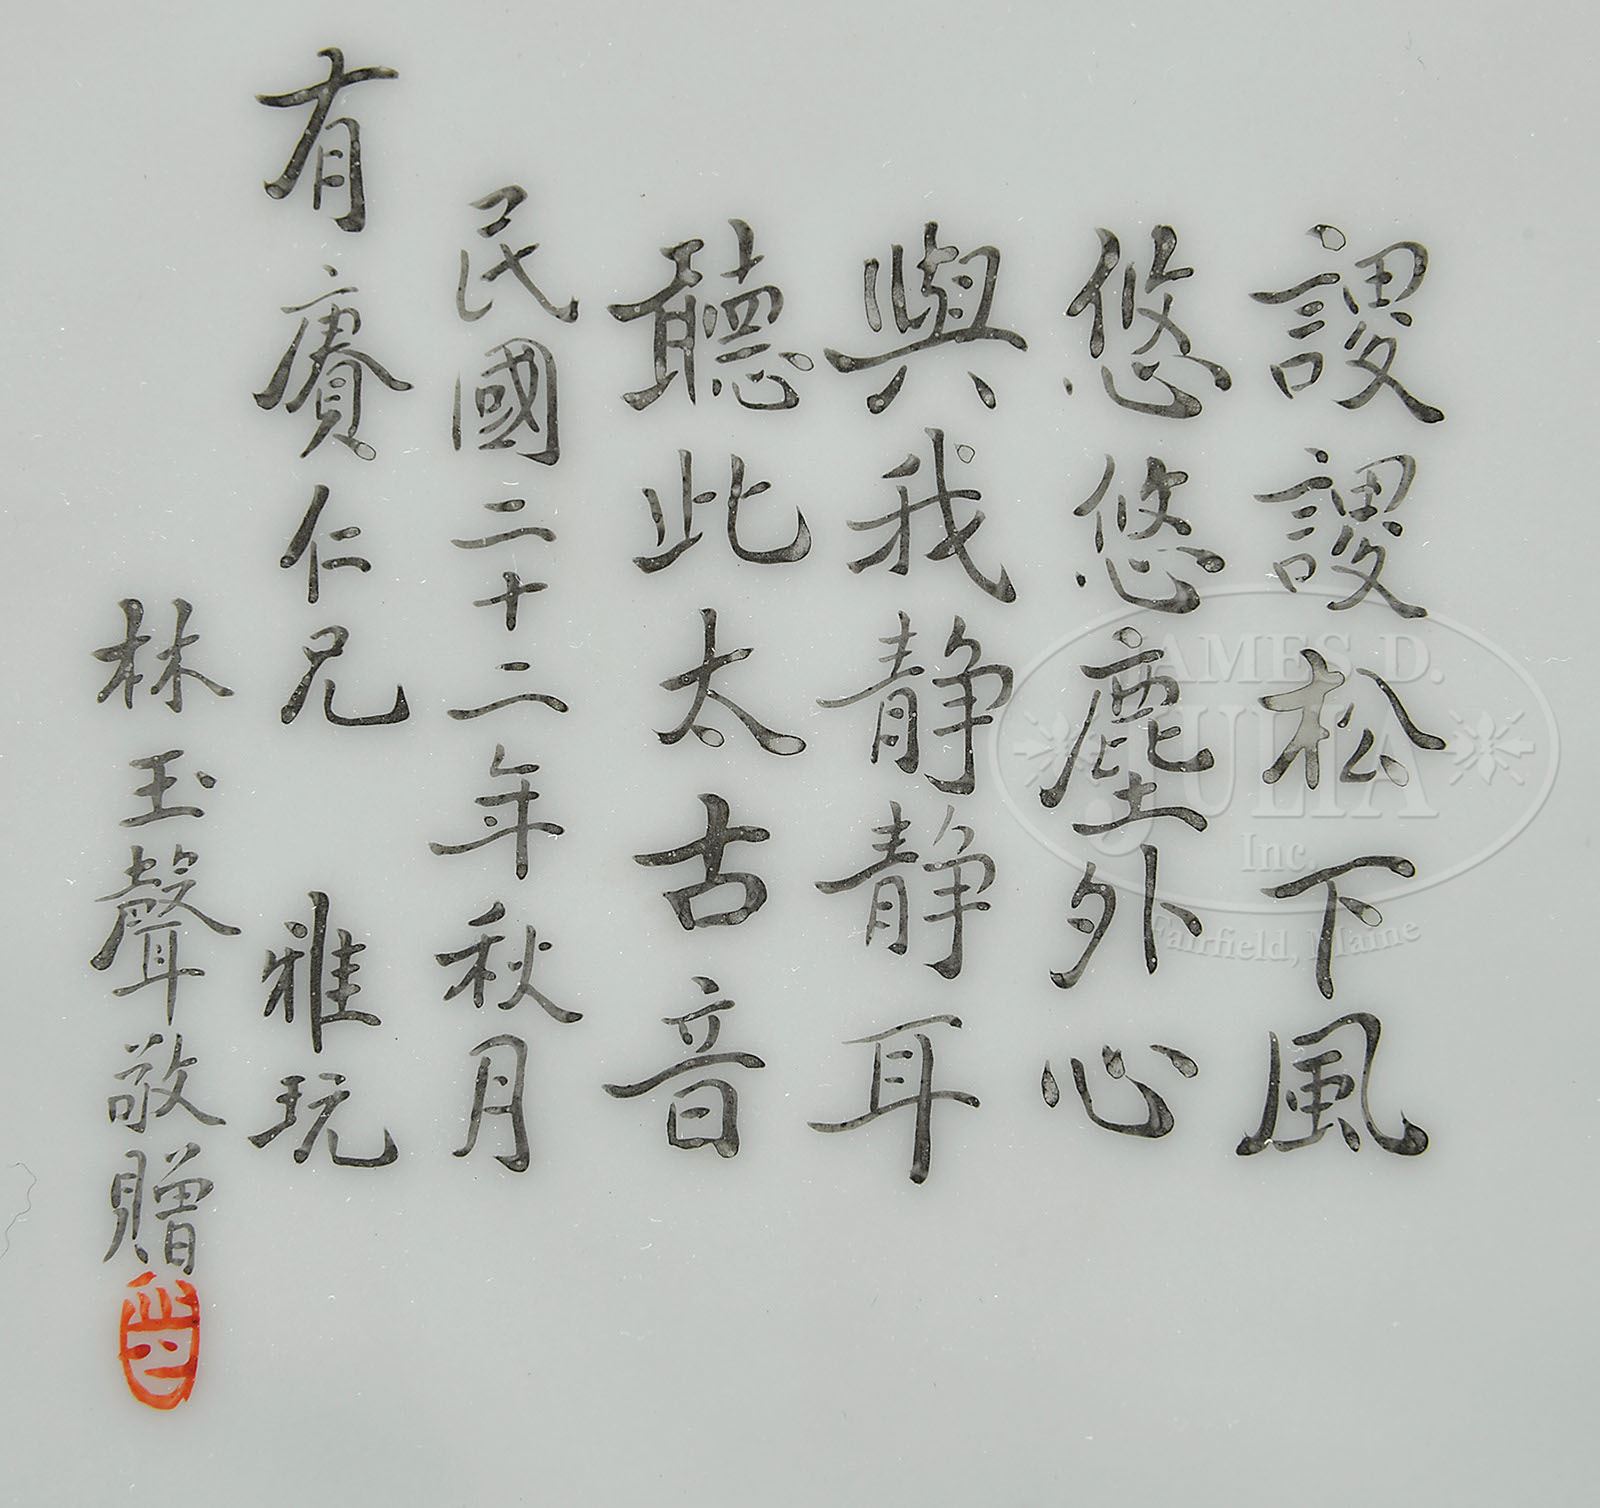 謖謖松下風
悠悠塵外心
與我静静耳
聽此太古音
民國二十二年秋月
有賡仁兄 雅玩
林玉聲敬贈
JAMES D.
JULIA
Inc.
Fairfield, Maine